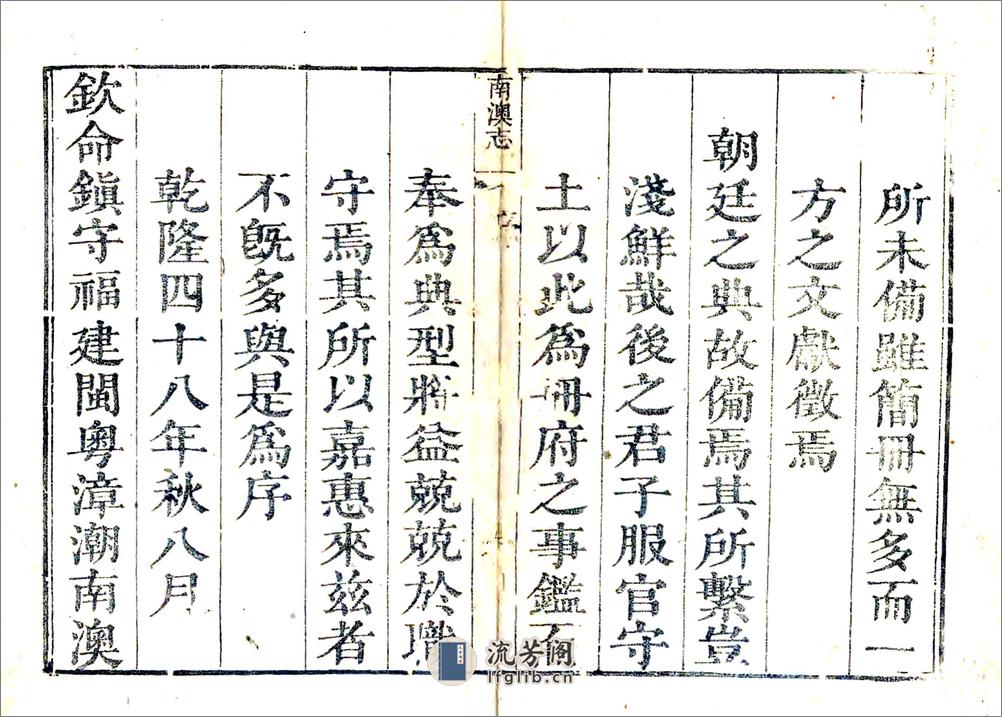 所未備雖簡冊無多而一
方之文獻徵焉
朝廷之典故備焉其所繫豈
淺鮮哉後之君子服官守
土以此為冊府之事鑑
南澳志
奉為典型將益兢兢於職
守焉其所以嘉惠來兹者
不旣多與是為序
乾隆四十八年秋八月
欽命鎮守福建閩粵漳潮南澳
流芳阁
lfglib.cn